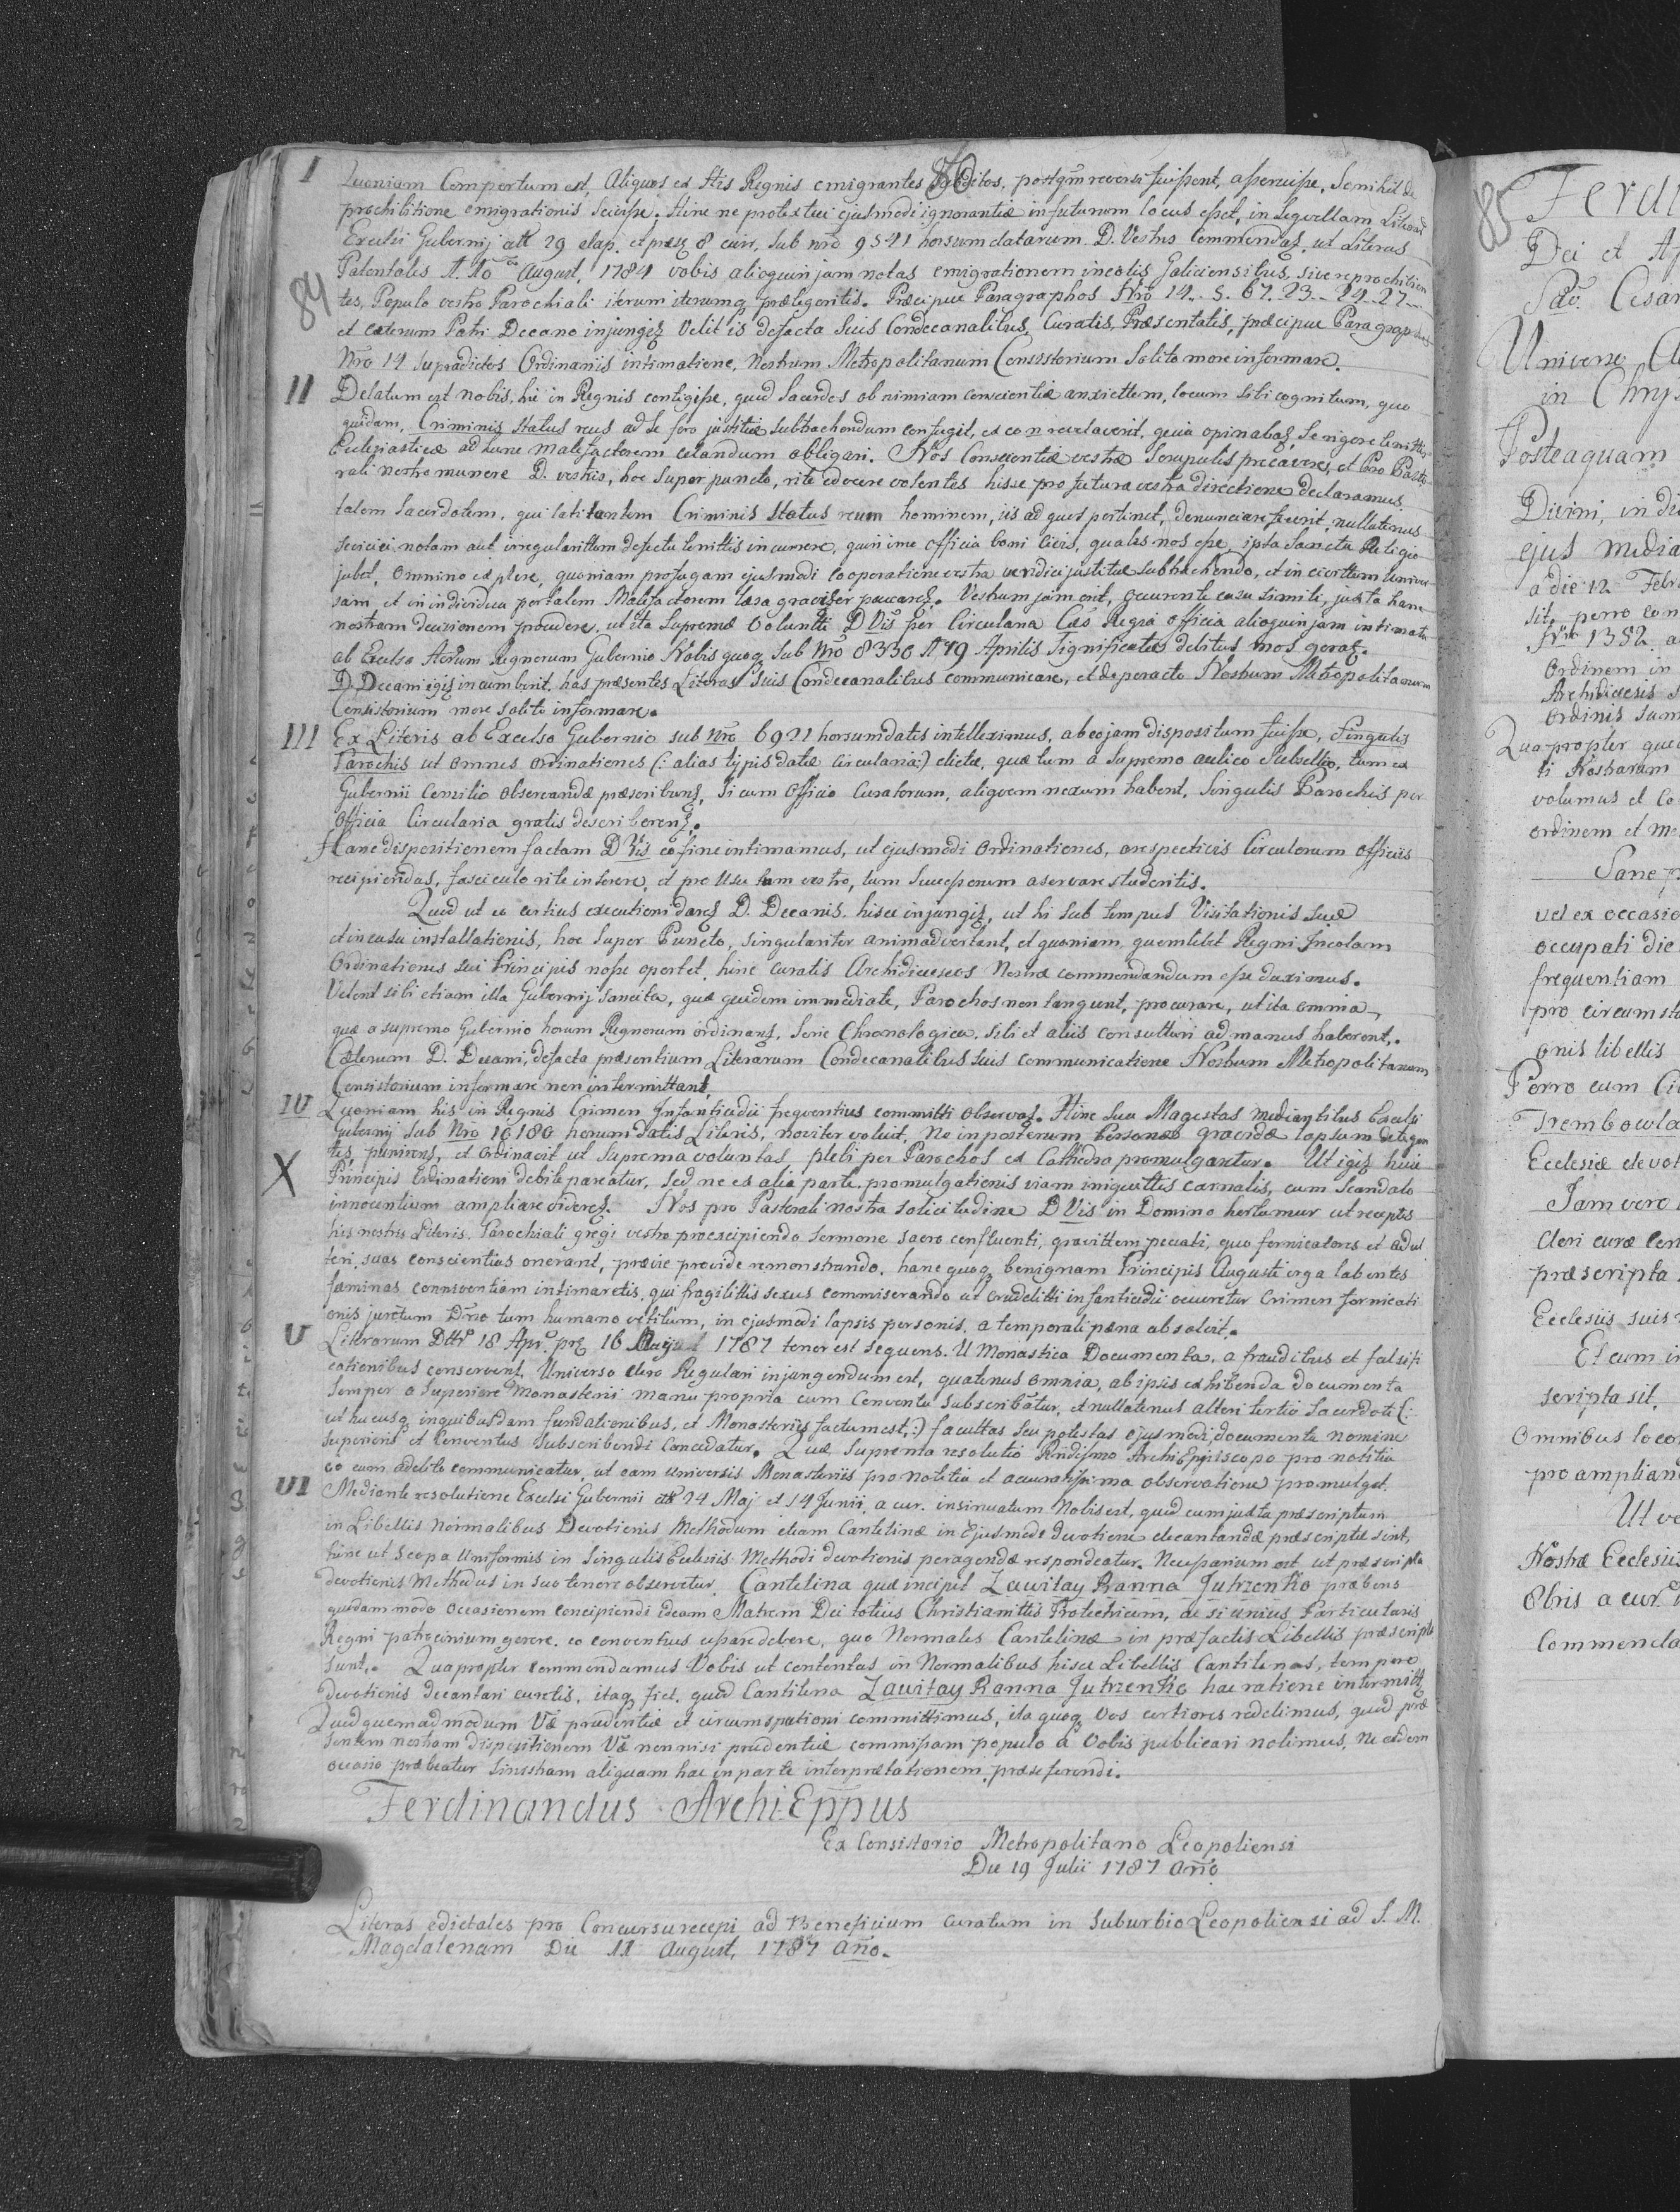 I Quoniam Compertum est, Aliquos ex Htis Regnis emigrantes Subditos, postqm reversi fuissent, asseruisse, Se nihil de
prochilitione emigrationis Scivisse. Hinc ne protextui ejusmodi ignorantiæ in futurum locus esset, in Sequellam Literar
Excelsi Gubernij 29 elap. et præs 8 curr, Sub nro 9541 horsum datarum D. Vestris Commendaȝ. ut Literas
84 Patentales August, 1784 vobis alioquin jam notas emigrationem incolis Galiciensibus, sive reprochibition
tes, Populo vestro Parochiali iterum iterumq prælegeritis. Præcipue Paragraphos Nro 14. 5. 67. 23. 24. 27
et cæterum Patri Decano injungiȝ Velit is defacta Suis Condecanalibus, Curatis, Præsentatis, præcipue Paragraphos
Nro 14 Supradictos Ordinariis intimatione, Nostrum Metropolitanum Consistorium Solito more informare.
II Delatum est nobis, hic in Regnis contigisse, quod Sacerdos ob nimiam conscientiæ anxiettem, locum Sibi cognitum, quo
quidam, Criminis Status reus ad Se foro justitiæ Subtrahendum confugit, ex eo n revelaverit, quia opinabaȝ, Se rigore lenittis
Eclesiasticæ ad hunc Malefactorem celandum obligari. Nos Conscientiæ vestræ Scrupulis precavere, et Pro Pasto
rali nostro munere D. vestris, hoc Super puncto, rite edocere volentes hisce pro futura vestra directione declaramus.
talem Sacerdotem, qui latitantem Criminis Status reum hominem, iis ad quos pertinet, Denunciare fecerit, nullatenus
Seviciei notam aut irregularittem defectu lenittis incurrere, quin imo officia boni Civis, quales nos esse, ipsa Sancta Religio
jubet, omnino explere, quoniam profugam ejusmodi cooperatione vestra veridici justitiæ Subtrahendo, et in civittem univer
sam et in individua per talem Malefactorem læsa graviter peccareȝ. Vestrum jam erit, occurrente casu Simili, juxta hanc
nostram decisionem procedere, ut ita Supremæ Volunti DVis per Circularia Cæs Regia officia alioquin jam intimata
ab Excelso Horum Regnorum Gubernio Nobis quoq Sub Nro 8330 19 Aprilis Significatæ debitus mos geraȝ.
D. Decani igiȝ incumberit, has præsentes Literas Suis Condecanalibus communicare, et de peracto Nostrum Metropolitanum
Consistorium more Solito informare.
III Ex Literis ab Excelso Gubernio sub Nro 6921 horsum datis intelleximus, ab eo jam dispositum fuisse, Singulis
Parochis ut omnes ordinationes (: alias typis datæ circularia :) dictæ, quæ tum a Supremo aulico Subsellio, tum ex
Gubernii Consilio observandæ præscribunȝ, Si cum Officio Curatorum, aliquem nexum habent, Singulis Parochis per
Officia Circularia gratis describerenȝ.
Hanc dispositionem factam DVis eo fine intimamus, ut ejusmodi ordinationes, a respectivis Circulorum officiis
recipiendas, fasciculo rite inserere, et pro Usu tam vestro, tum Successorum aservare studeritis.
Quod ut eo certius executioni dareȝ D. Decanis hisce injungiȝ, ut hi Sub tempus Visitationis Suæ
et in casu installationis, hoc Super Puncto, singulariter animadvertant, et quoniam, quemlibet Regni Incolam
Ordinationes sui Principis nosse oportet, hinc curatis Archidiæceseos Nostræ commendandum esse duximus.
Velent sibi etiam illa Gubernij Sancita, quæ quidem immediate, Parochos non tangunt, procurare, ut ita omnia,
quæ a supremo Gubernio horum Regnorum ordinanȝ, Serie Chronologica, sibi et aliis consulturi ad manus haberent.
Cæterum D. Decani, defacta præsentium Literarum Condecanalibus suis communicatione Nostrum Metropolitanum
Consistorium informare non intermittant.
IV Quoniam his in Regnis Crimen Infanticidii frequentius committi observaȝ. Hinc Sua Magestas mediantibus Excelsi
Gubernij Sub Nro 10180 horum datis Literis, noviter voluit, Ne in posterum Personæ gravidæ lapsum detegen
X tes, punirenȝ, et Ordinavit ut Suprema voluntas plebi per Parochos ex Cathedra promulgantur. Ut igiȝ huic
Principis Ordinationi debite pareatur, Sed ne ex alia parte promulgationis viam iniquittis carnalis, cum Scandalo
innocentium ampliare videreȝ. Nos pro Pastorali nostra solicitudine DVis in Domino hortamur ut receptis
his nostris Literis, Parochiali gregi vestro præscipiendo Sermone sacro confluenti, gravittem peccati, quo fornicatores et adul
teri, suas conscientias onerant, prævie provide remonstrando, hanc quoq benignam Principis Augusti erga labentes
fæminas conniventiam intimaretis, qui fragilittis sexus commiserando ut crudelitti infanticidii occuretur Crimen fornicati
onis juretum Dno tum humano vetitum, in ejusmodi lapsis personis, a temporali pæna absolvit.
V Literarum Ddto 18 Apr. prȝ 16 1787 tenor est sequens. U Monastica Documenta, a fraudibus et falsifi
cationibus conservent, Universo clero Regulari injungendum est, quatenus omnia, ab ipsis exhibenda documenta
Semper a Superiore Monasterii manu propria cum Conventu Subscribātur, et nullatenus alteri tertio Sacerdoti (:
ut hucusq in quibusdam fundationibus, et Monasteriis factum est, :) facultas Seu potestas ejusmodi documenta nomine
Superioris et Conventus Subscribendi concedatur. Quæ Suprema resolutio Rndissmo ArchiEpiscopo pro notitia
eo cum adelito communicatur, ut eam universis Monasteriis pro notitia et accuratissima observatione promulget.
VI Mediante resolutione Excelsi Gubernii 24 Maj et 14 Junii, a cur. insinuatum Nobis est, quod cum juxta præscriptum
in Libellis Normalibus Devotionis Methodum etiam Cantilinæ in Ejusmodi devotione decantandæ præscriptæ sint,
hinc ut Scopa Uniformis in Singulis Eclesiis Methodi devotionis peragendæ respondeatur. Necessarium est, ut præscripta
devotionis Methodus in suo tenore observetur. Cantelina quæ incipit Zawitay Ranna Jutrzenko præbens
quodammodo Occasionem concipiendi ideam Matrem Dei totius Christianittis Protectricem, ac si unius Particularis
Regni patrocinium gerere, eo conventius cessare debere, quo Normales Cantelinæ in præfactis Libellis præscriptæ
sunt. Quapropter commendamus Vobis ut contentas in Normalibus hisce Libellis Cantilenas, tempore
devotionis decantari curetis, itaq fiet, quod Cantilena Zawitay Ranna Jutrzenko hac ratione intermitt
Quod quemadmodum Væ prudentiæ et circumspectioni committimus, ita quoq Vos certiores reddimus, quod præ
sentem nostram dispositionem Væ nonnisi prudentiæ commissam populo a Vobis publicari nolimus, ne exdem
occasio præbeatur Sinistram aliquam hac in parte interprætationem præseferendi.
Ferdinandus ArchiEppus
Ex Consistorio Metropolitano Leopoliensi
Die 19 Julii 1787 Anno
Literas edictales pro Concursu recepi ad Beneficium curatum in Suburbio Leopoliensi ad S. M.
Magdalenam Die 11 August, 1787 anno.
85 Ferdi
Dei et Ap
Sac. Cesar
Universo
in Chrys
Posteaquam
Divini, in di
ejus media
a die 12 Febr
sit, porro con
Nro 1352 a
Ordinem in
Archidiæcesis
Ordinis Sum
Quapropter que
ti Nostrarum
volumus et Co
ordinem et me
Sane p
vel ex occasio
occupati die
frequentiam
pro circumsta
onis libellis
Porro cum Ci
Trembowla
Ecclesiæ devot
Jam vero
Cleri curæ
præscripta
Ecclesiis suis
Et cum i
scripta sit,
Omnibus loco
pro amplian
Ut ve
Nostræ Ecclesi
Obris a cur
Commenda